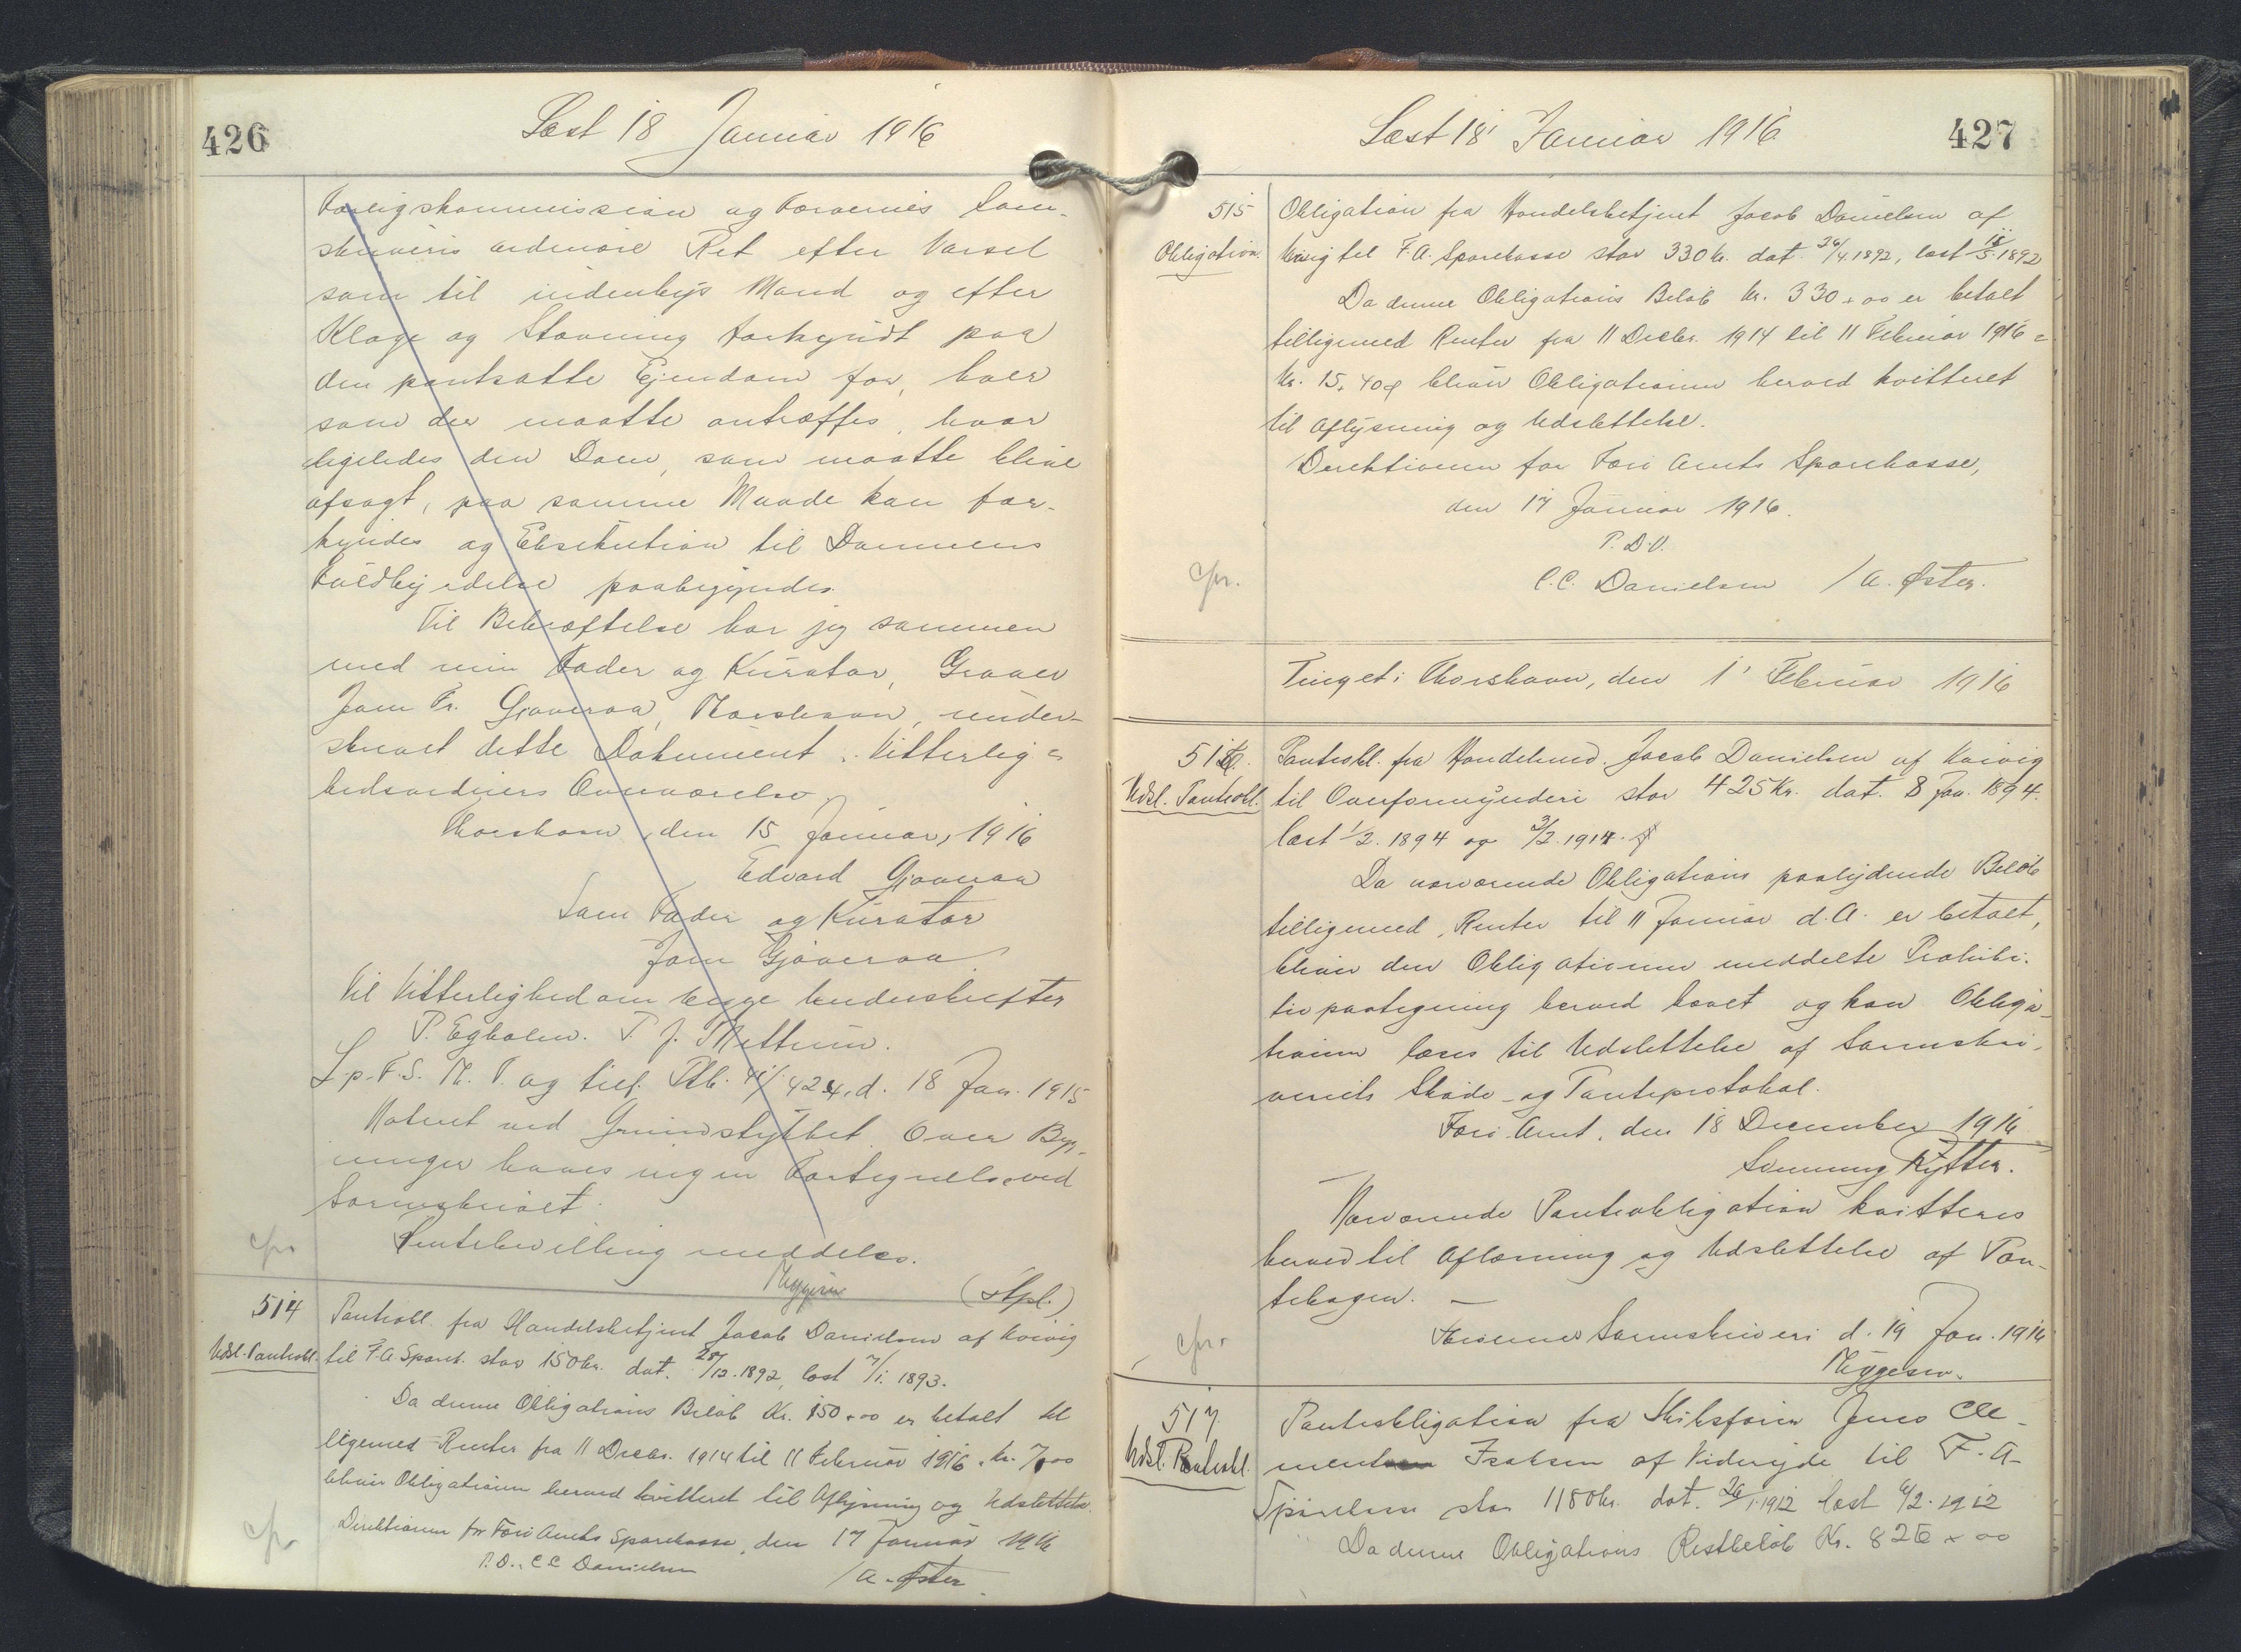 426
Læst 18 Januar 1916
Forligskommission og Færøernes Soren-
skriveris ordinære Ret efter Varsel
som til indenbys Mand og efter
Klage og Stævning forkyndt paa
den pantsatte Ejendom for, hver
som der maatte antræffes, hvor
ligeledes den Dom, som maatte blive
afsagt, paa samme Maade kan for-
kyndes og Eksekution til Dommens
Fuldbyrdelse paabegyndes.
Til Bekræftelse har jeg sammen
med min Fader og Kurator, Graver
Joen Fr. Gjoveraa, Thorshavn, under-
skrevet dette Dokument i Vitterlig-
hedsvidners Overværelse.
Thorshavn, den 15 Januar, 1916
Edvard Gjoveraa
Som Fader og Kurator
Joen Gjoveraa
Til Vitterlighed om begge Underskrifter
P. Egholm. P. J. Mettrim.
L. p. F. S. M. T. og tilf. Ptb. 424, d. 18 Jan. 1915
Noteret ved Grundstykket. Over Byg-
ninger haves ingen Fortegnelse ved
Sorenskriveriet.
Rentebevilling meddeles.
cfr.
Myggesen (Stpl.)
514
Udsl. Panteobl.
Panteobl. fra Handelsbetjent Jacob Danielsen af Kvivig
til F. A. Spark. stor 150 kr. dat. 28/12. 1892, læst 7/1. 1893.
Da denne Obligations Beløb Kr. 150,00 er betalt til
ligemed Renter fra 11 Decbr. 1914 til 11 Februar 1916 Kr. 7,00
bliver Obligationen herved kvitteret til Aflysning og Udslettelse
Direktionen for Færø Amts Sparekasse, den 17 Januar 1916
P. D. V. C C Danielsen / A. Øster.
cfr.
427
Læst 18 Januar 1916
515
Obligation.
Obligation fra Handelsbetjent Jacob Danielsen af
Kvivig til F. A. Sparekasse stor 330 kr. dat. 26/4. 1892, læst 18/5. 1892
Da denne Obligations Beløb Kr. 330,00 er betalt
tilligemed Renter fra 11 Decbr. 1914 til 11 Februar 1916 =
Kr. 15,40 bliver Obligationen herved kvitteret
til Aflysning og Udslettelse.
Direktionen for Færø Amts Sparekasse,
den 17 Januar 1916.
P. D. V.
C. C. Danielsen / A. Øster.
cfr.
Tinget i Thorshavn, den 1' Februar 1916
516.
Udsl. Pantobl.
Panteobl. fra Handelsmd. Jacob Danielsen af Kvivig
til Overformynderi stor 425 Kr. dat. 8 Jan. 1894.
læst 1/2. 1894 og 3/2. 1914.
Da nærværende Obligations paalydende Beløb
tilligemed Renter til 11 Januar d. A. er betalt,
bliver den Obligationen meddelte Prohibi-
tivpaategning herved hævet og kan Obliga-
tionen læses til Udslettelse af Sorenskri-
veriets Skøde- og Panteprotokol.
Færø Amt, den 18 December 1916
Svenning Rytter.
Nærværende Panteobligation kvitteres
herved til Aflæsning og Udslettelse af Pan-
tebogen.
Færøernes Sorenskriveri d. 19 Jan. 1916
Myggesen.
cfr.
517.
Udsl. Pantobl.
Panteobligation fra Skibsfører Jens Cle-
ment Isaksen af Viderejde til F. A.
Sparekasse stor 1180 kr. dat. 26/1. 1912 læst 6/2. 1912
Da denne Obligations Restbeløb Kr. 826,00